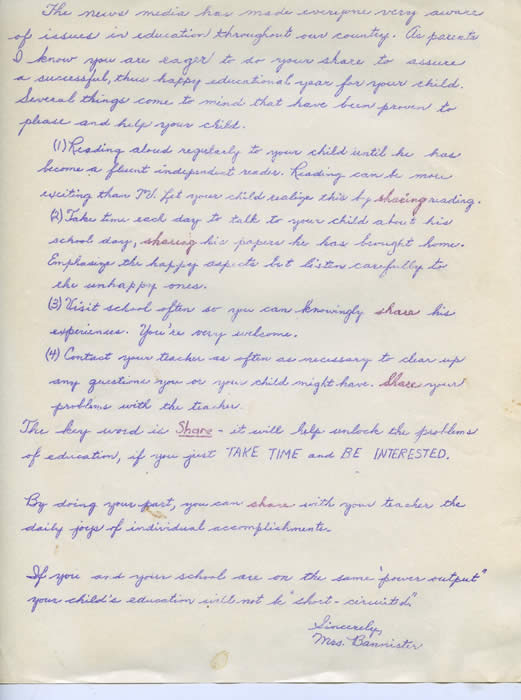 The news media has made everyone very aware
of issues in education throughout our country. As parents
I know you are eager to do your share to assure
a successful, thus happy educational year for your child.
Several things come to mind that have been proven to
please and help your child.
(1) Reading aloud regularly to your child until he has
become a fluent independent reader. Reading can be more
exciting than TV. Let your child realize this by sharing reading.
(2) Take time each day to talk to your child about his
school day, sharing his papers he has brought home.
Emphasize the happy aspects but listen carefully to
the unhappy ones.
(3) Visit school often so you can knowingly share his
experiences. You're very welcome.
(4) Contact your teacher as often as necessary to clear up
any questions you or your child might have. Share your
problems with the teacher.
The key word is Share - it will help unlock the problems
of education, if you just TAKE TIME and BE INTERESTED.
By doing your part, you can share with your teacher the
daily joys of individual accomplishments.
If you and your school are on the same "power output"
your child's education will not be "short-circuited."
Sincerely,
Mrs. Bannister